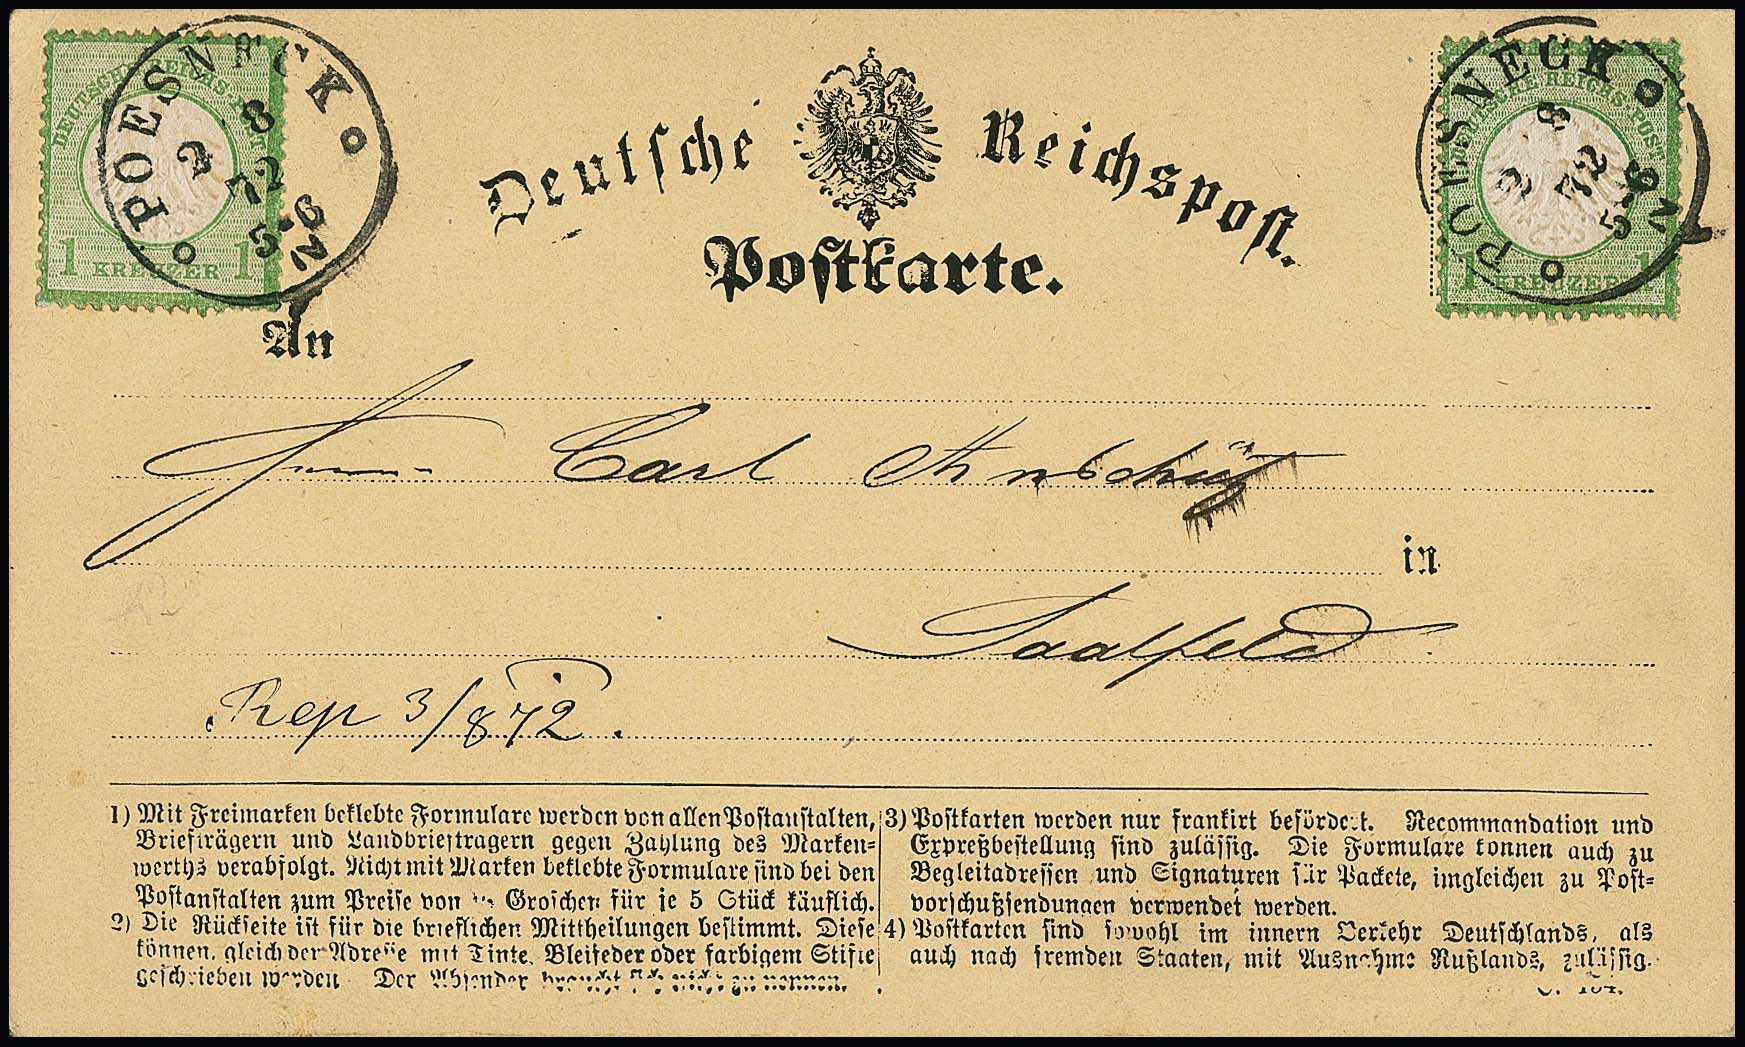 DEUTSCHE REICHS-POST
1 KREUZER 1
POESNECK
2 8
72
5-6
N
DEUTSCHE REICHS-POST
1 KREUZER 1
POESNECK
2 8
72
5-6
N
Deutsche Reichspost.
Postkarte.
An
Carl Anschütz
in
Saalfeld
Rep 3/8 72.
1) Mit Freimarken beklebte Formulare werden von allen Postanstalten,
Briefträgern und Landbriefträgern gegen Zahlung des Marken-
werths verabfolgt. Nicht mit Marken beklebte Formulare sind bei den
Postanstalten zum Preise von Groschen für je 5 Stück käuflich.
2) Die Rückseite ist für die brieflichen Mittheilungen bestimmt. Diese
können, gleich der Adresse mit Tinte, Bleifeder oder farbigem Stifte
geschrieben werden. Der Absender braucht sich nicht zu nennen.
3) Postkarten werden nur frankirt befördert. Recommandation und
Expreßbestellung sind zulässig. Die Formulare können auch zu
Begleitadressen und Signaturen für Packete, imgleichen zu Post-
vorschußsendungen verwendet werden.
4) Postkarten sind sowohl im innern Verkehr Deutschlands, als
auch nach fremden Staaten, mit Ausnahme Rußlands, zulässig.
C. 154.